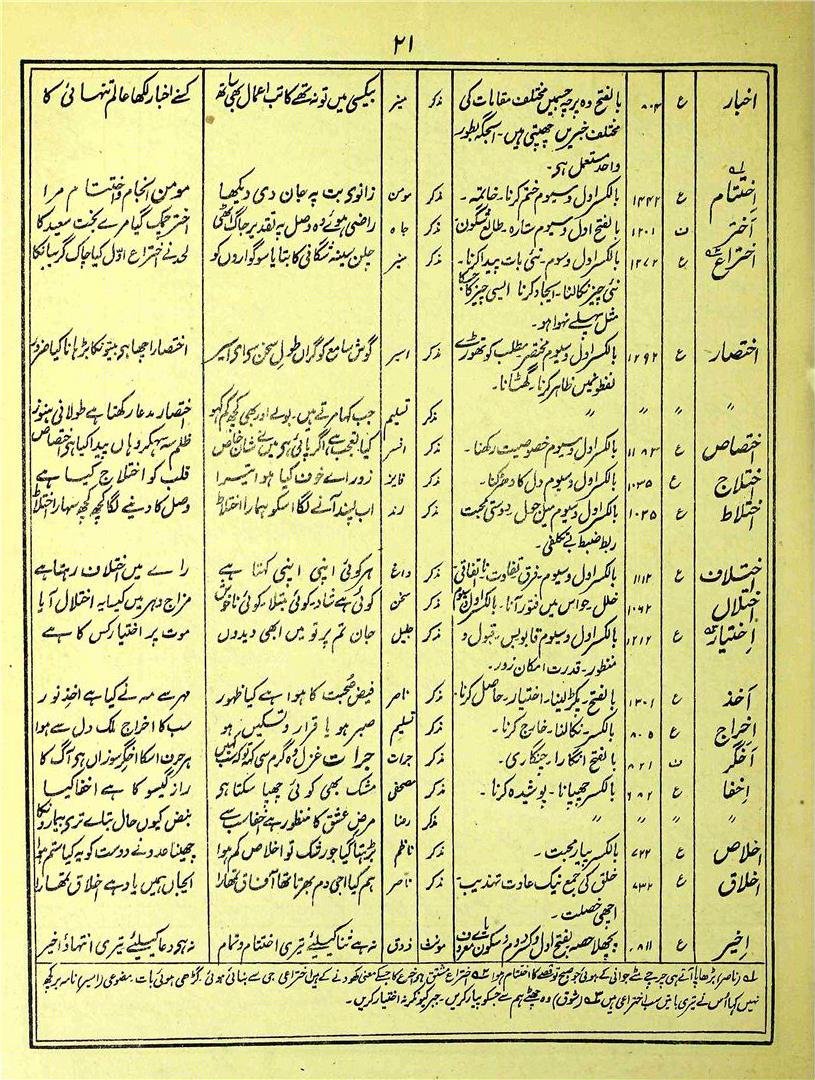 ۲۱
اخبار ع ۸۰۴ بالفتح وہ پرچہ جسمیں مختلف مقامات کی مذکر منیر بیکسی میں تو نہ تھے کاتب اعمال بھی ساتھ کسنے اخبار لکھا عالم تنہائی کا
مختلف خبریں چھپتی ہیں۔ اسجگہ بطور
واحد مستعمل ہی۔
اِختتام ع ۱۴۴۲ بالکسر اول و سیوم ختم کرنا۔ خاتمہ۔ مذکر مومن زانوی بت پہ جان دی دیکھا مومن انجام و اختتام مرا
اَختر ف ۱۲۰۱ بالفتح اول و سیوم ستارہ۔ طالع شگون مذکر جاہ راضی ہوئے وہ وصل پہ تقدیر جاگ اٹھی اختر چمک گیا مرے بخت سعید کا
اختراع ع ۱۲۷۲ بالکسر اول و سوم۔ نئی بات پیدا کرنا۔ مذکر منیر چلن سینہ شگافی کا بتایا سوگواروں کو لحد نے اختراع اوّل کیا چاک گریبانکا
نئی چیز نکالنا۔ ایجاد کرنا ایسی چیز کا جسکا
مثل پہلے نہوا ہو۔
اختصار ع ۱۲۹۲ بالکسر اول و سیوم مختصر۔ مطلب کو تھوڑے مذکر اسیر گوش سامع کو گراں طول سخن سوا ہی اسیر اختصار اچھا ہی بیتونکا بڑہانا کیا ضرور
لفظونمیں ظاہر کرنا۔ گھٹانا۔
〃 〃 مذکر تسلیم جب کہا مرتے ہیں۔ بولے اور بھی کچھ کم کہو اختصار مدعا رکھتا ہے طولانی ہنوز
اختصاص ع ۱۱۸۳ بالکسر اول و سیوم خصوصیت رکھنا۔ مذکر افسر کیا تعجب ہے اگر پائی ہی میں نے شان خاص ظلم سہہ سہکر وہاں پیدا کیا ہی اختصاص
اختلاج ع ۱۰۳۵ بالکسر اول و سیوم دل کا دھڑکنا۔ مذکر فایز زور اے خوف کیا ہوا تیرا قلب کو اختلاج کیسا ہے
اختلاط ع بالکسر اول و سیوم میل جول۔ دوستی محبت مذکر رند اب پسند آنے لگا اسکو ہمارا اختلاط وصل کا دینے لگا کچھ کچھ سہارا اختلاط
ربط ضبط بے تکلفی۔
اختلاف ع ۱۱۱۲ بالکسر اول و سیوم۔ فرق تفاوت نااتفاقی مذکر داغ ہر کوئی اپنی اپنی کہتا ہے رائے میں اختلاف رہتا ہے
اختلال ۱۰۶۲ خلل۔ حواس میں فتور آنا۔ بالکسر اول و سیوم مذکر سخن کوئی ہے شاد۔ کوئی مبتلا۔ کوئی ناخوش مزاج دہر میں کیسا یہ اختلال آیا
اِختیار ع ۱۲۱۲ بالکسر اول و سیوم قابو۔ بس۔ قبول و مذکر جلیل جان تم پر تو میں ابھی دیدوں موت پر اختیار کس کا ہے
منظور۔ قدرت امکان زور۔
اَخذ ع ۱۳۰۱ بالفتح۔ پکڑ لینا۔ اختیار۔ حاصل کرنا۔ مذکر ناصر فیض صحبت کا ہوا ہے کیا ظہور مہر سے مہ نے کیا ہے اخذ نور
اِخراج ع ۸۰۵ بالکسر۔ نکالنا۔ خارج کرنا۔ مذکر تسلیم صبر ہو یا قرار و تسکیں ہو سب کا اخراج ملک دل سے ہوا
اَخگر ف ۸۲۱ بالفتح انگارا۔ چنگاری۔ مذکر جرات جرات غزل کہہ گرم سی کہ تو کہ سب کہیں ہر حرف اسکا اخگر سوزاں ہی آگ کا
اِخفا ع ۶۸۲ بالکسر چھپانا۔ پوشیدہ کرنا۔ مذکر مصحفی مشک بھی کوئی چھپا سکتا ہی راز گیسو کا ہے اخفا کیسا
〃 〃 〃 مذکر رضا مرض عشق کا منظور ہے اخفا سب سے نبض کیوں حال بتلے تری بیمارونکا
اخلاص ع ۷۲۲ بالکسر پیار محبت۔ مذکر ناظم بڑہتا گیا جو رشک تو اخلاص کم ہوا چھینا عدو نے دوست کو یہ کیا ستم ہوا
اخلاق ع ۷۳۲ خلق کی جمع نیک عادت تہذیب مذکر ناصر ہم کیا اجی دم بھرتا تھا آفاق تمھارا ایجاں ہمیں یاد ہے اخلاق تمھارا
اچھی خصلت۔
اخیر ع ۸۱۱ پچھلا حصہ بفتح اول و کسر دوم و سکون یائے معروف مونث ذوق نہ ہے ثنا کیلئے تیری اختتام و تمام نہ ہی دعا کیلئے تیری انتہا و اخیر
لہ (ناصر) بڑھاپا آتے ہی چرچے مٹے جوانی کے ہوئی جو صبح تو قصے کا اختتام ہوا ۲ہ اختراع مشتق ہو خرع کا جسکے معنی کھودنے کے ہیں اختراعی جی سے بنائی ہوئی۔ گڑھی ہوئی بات۔ مصنوعی (اسیر) نامہ بر کچھ
نہیں کہا اُس نے تیری باتیں سب اختراعی ہیں ۳ہ (شوق) وہ چھٹے ہم سے جسکو پیار کریں۔ جبر کیونکر نہ اختیار کریں۔